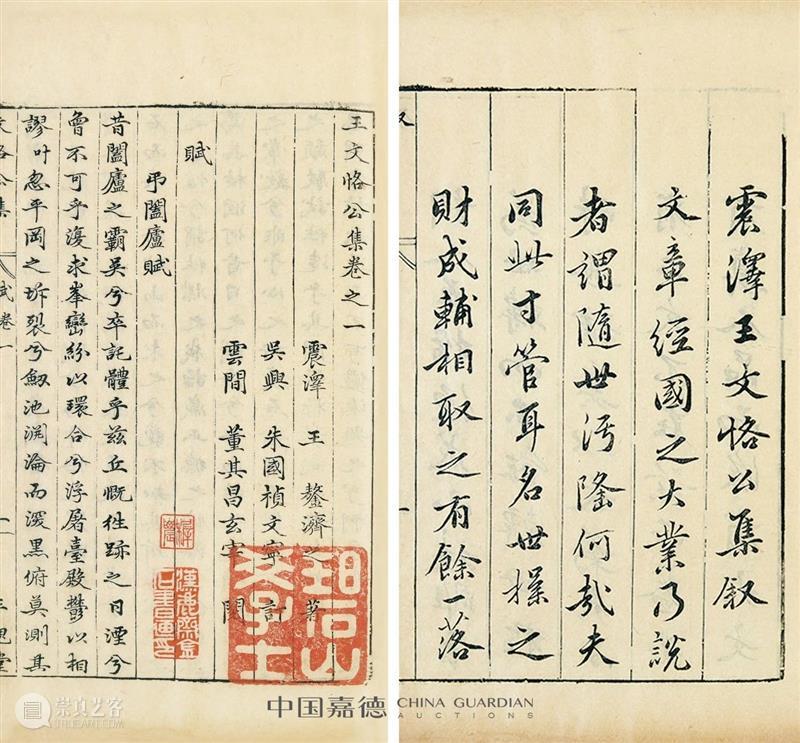 震澤王文恪公集叙
文章經國之大業乃說
者謂隨世汚隆何哉夫
同此寸管耳名世操之
財成輔相取之有餘一落
王文恪公集卷之一
震澤 王 鏊濟之 著
吳興 朱國禎文寧 訂
雲間 董其昌玄宰 閱
賦
弔闔廬賦
昔闔廬之霸吳兮卒託體乎兹丘慨往跡之日湮兮
曾不可乎復求峯巒紛以環合兮浮屠臺殿鬱以相
謬叶忽平岡之坼裂兮劔池泓淪而深黑俯莫測其
文恪公集 賦卷一 一 三槐堂
漢鹿齋金石書畫印
中国嘉德 CHINA GUARDIAN
AUCTIONS
崇真艺客